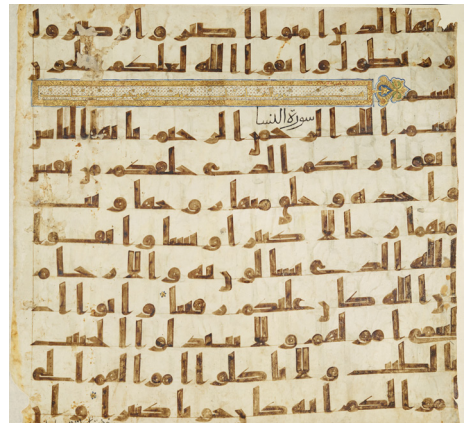 يايها الذين امنوا اصبروا وصبروا
ورابطوا واتقوا الله لعلكم تفلحون
سورة النسا
بسم الله الرحمن الرحيم يايها الناس
اتقوا ربكم الذي خلقكم من نفس
وحده وخلق منها زوجها وبث
منهما رجالا كثيرا ونسا واتقوا
الله الذي تسالون به والارحام
ان الله كان عليكم رقيبا واتوا ا
ليتمى امولهم ولا تتبدلوا الخبيث
بالطيب ولا تاكلوا امولهم الى
امولكم انه كان حوبا كبيرا وان